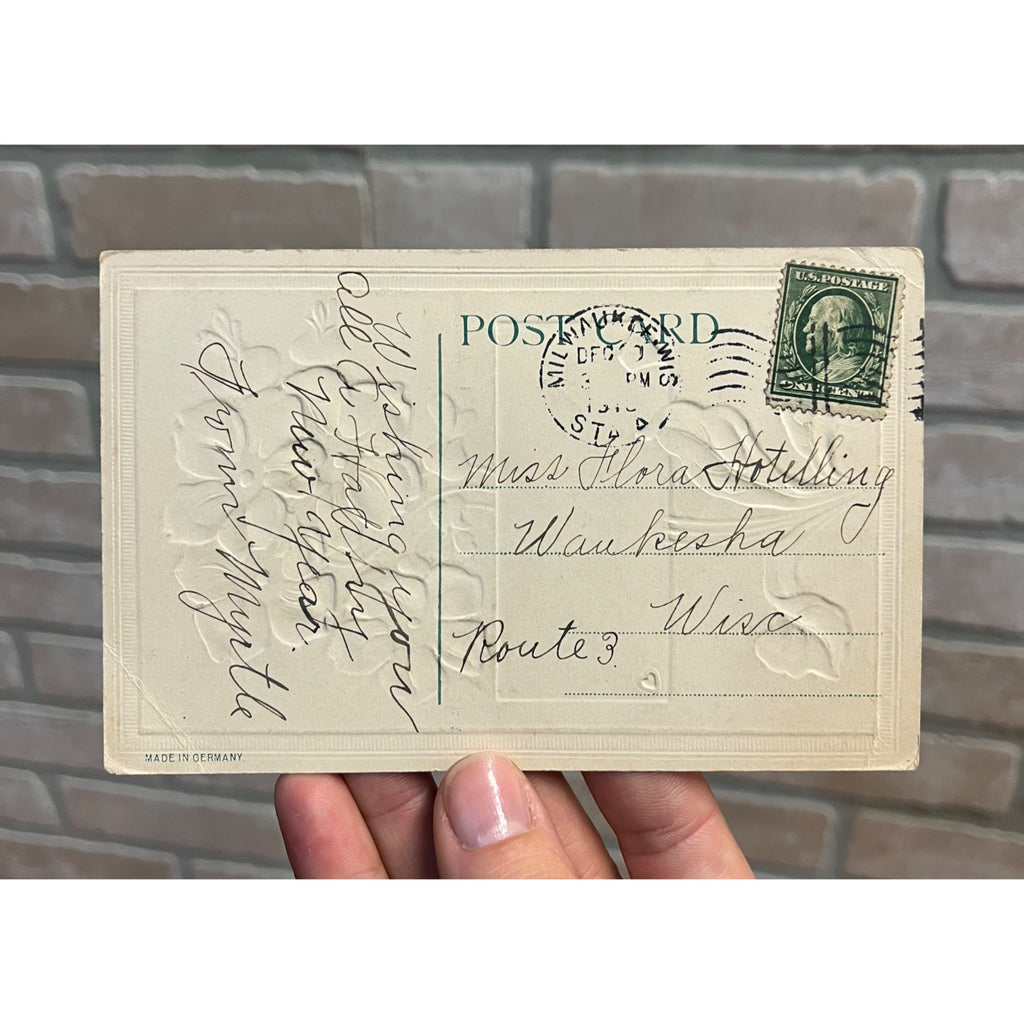 Wishing you
all a Happy
New Year.
From Myrtle
POST CARD
MILWAUKEE WIS
DEC
PM
STA
U.S. POSTAGE
ONE CENT
Miss Flora Hotelling
Waukesha
Wisc.
Route 3.
MADE IN GERMANY.